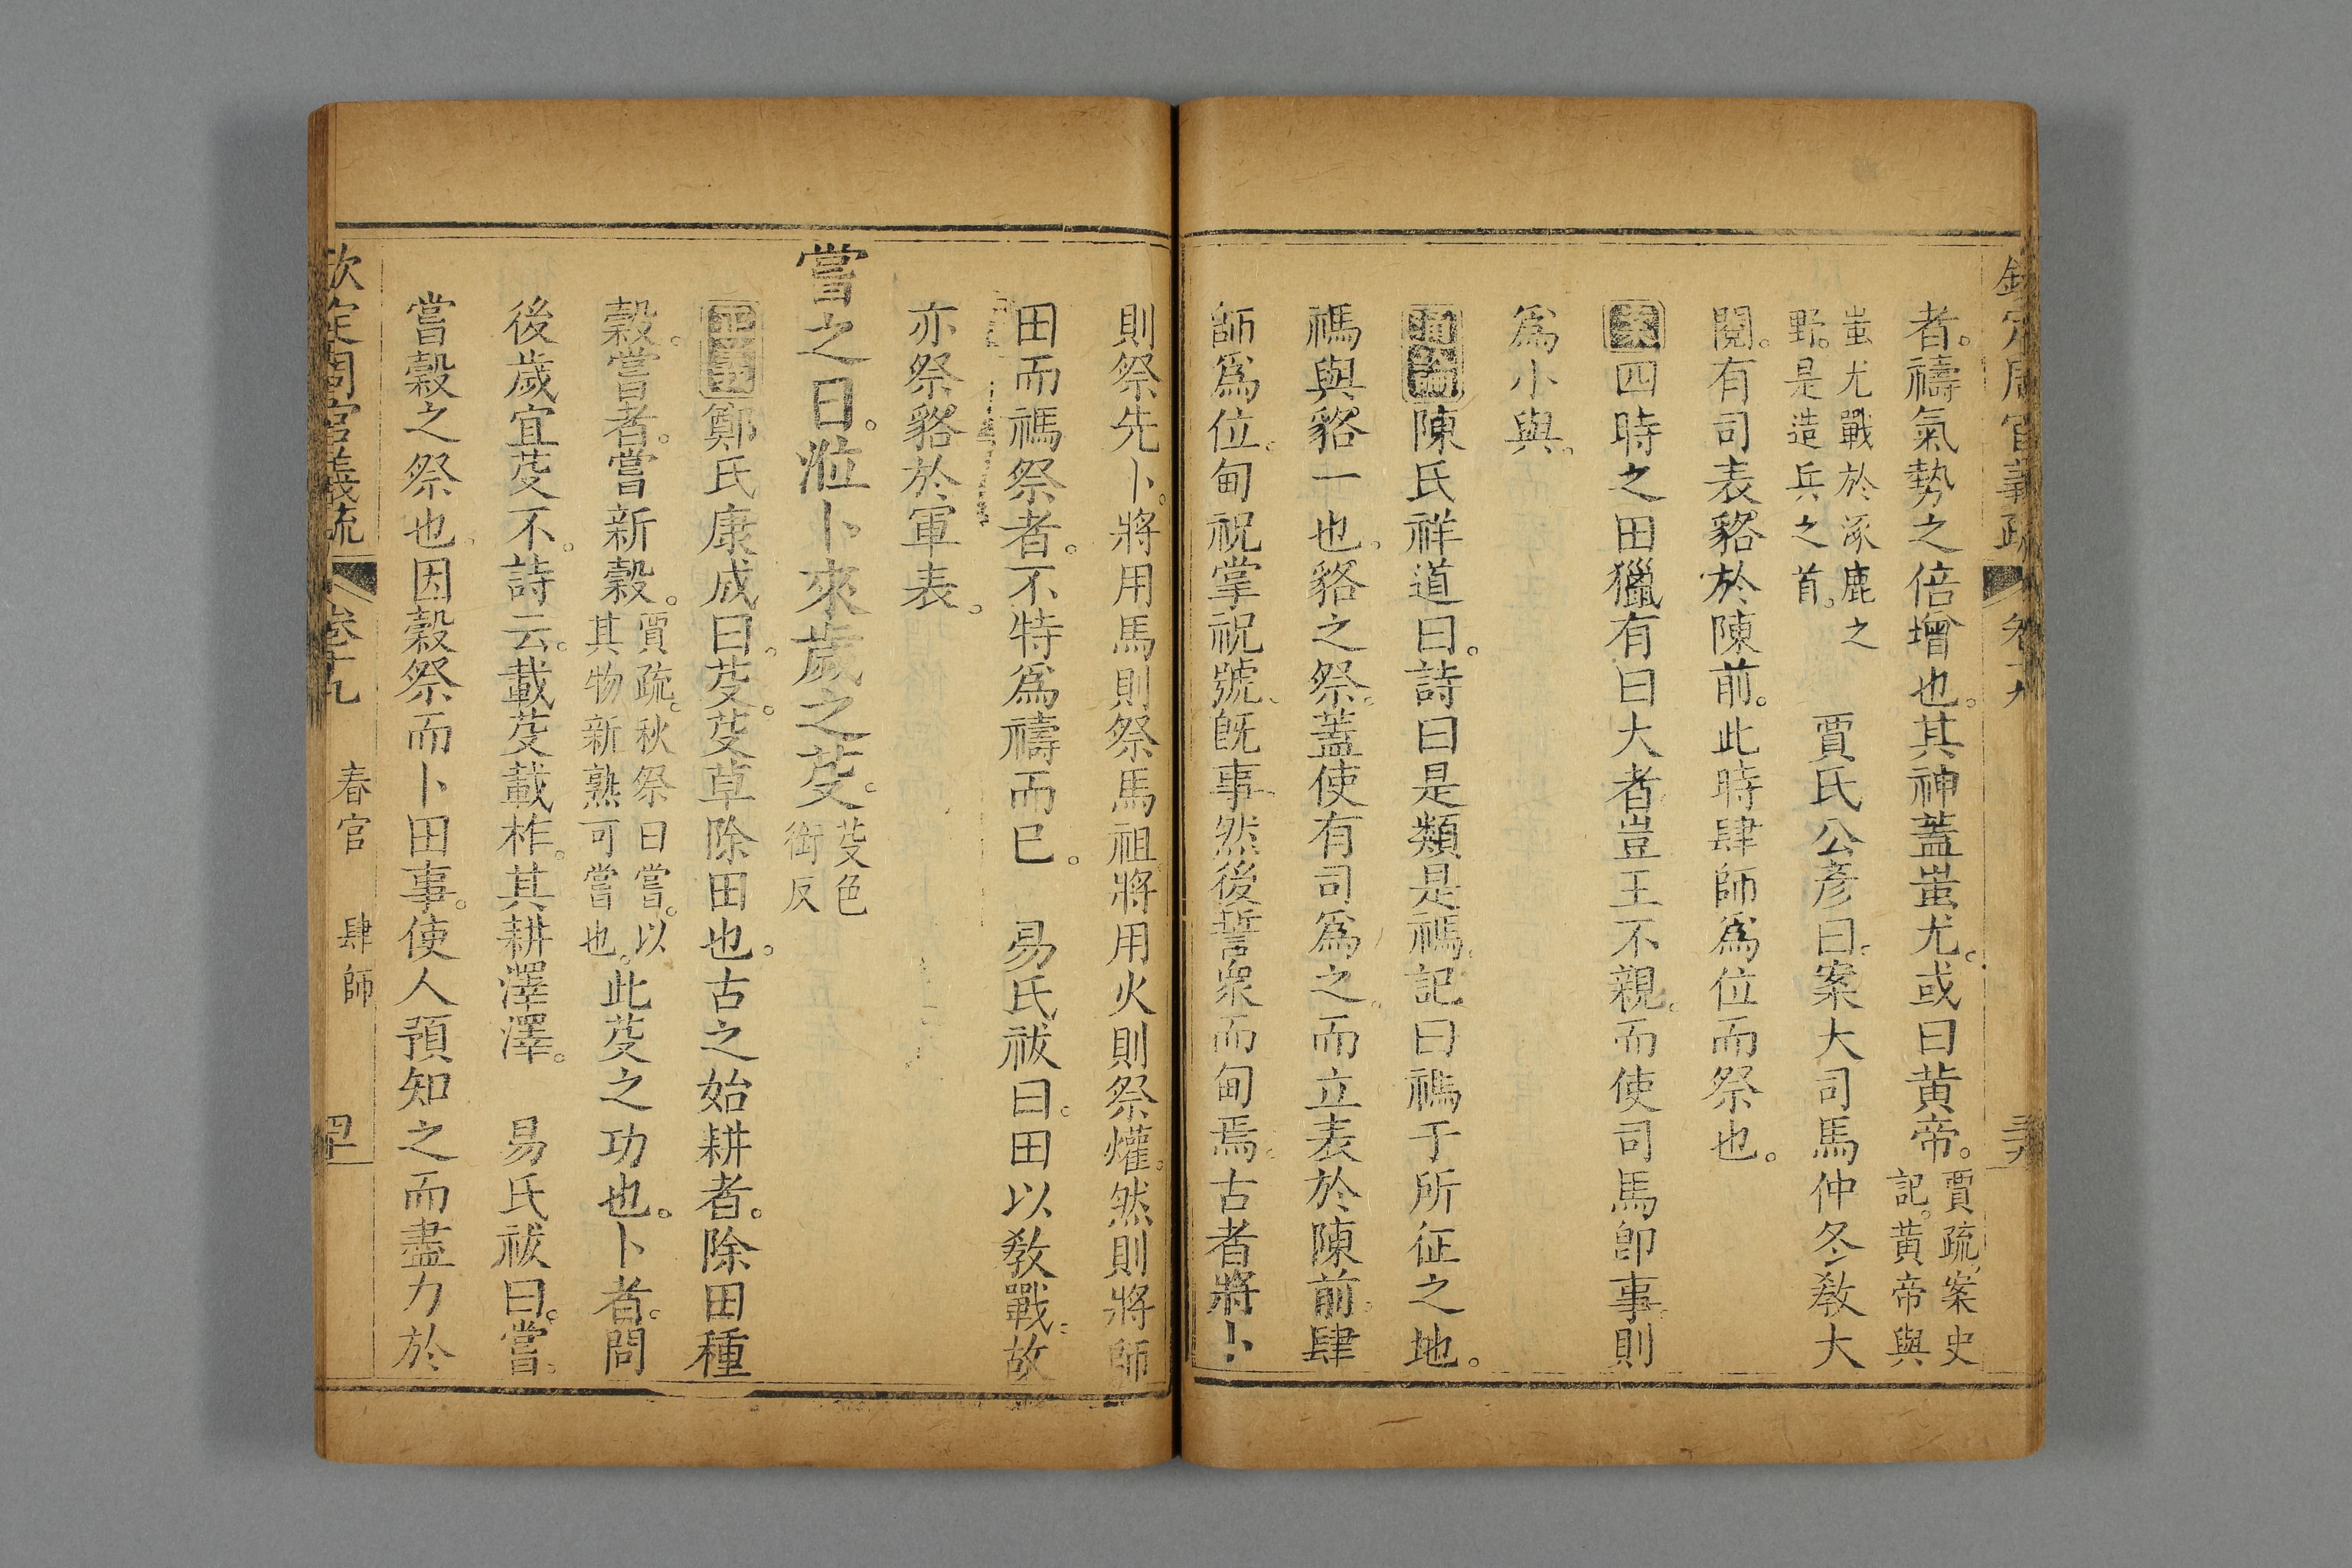 欽定周官義疏 卷十九
者。禱氣勢之倍增也。其神蓋蚩尤。或曰黃帝。賈疏。案史記。黃帝與
蚩尤戰於涿鹿之野。是造兵之首。 賈氏公彥曰。案大司馬仲冬教大
閱。有司表貉於陳前。此時肆師爲位而祭也。
案四時之田獵有曰大者豈王不親。而使司馬卽事。則
爲小與。
通論陳氏祥道曰。詩曰是類是禡。記曰禡于所征之地。
禡與貉一也。貉之祭。蓋使有司爲之。而立表於陳前。肆
師爲位。甸祝掌祝號。既事。然後誓衆而甸焉。古者將卜
則祭先卜。將用馬則祭馬祖。將用火則祭爟。然則將師
田而禡祭者。不特爲禱而已。 易氏祓曰。田以敎戰。故
亦祭貉於軍表。
嘗之日。涖卜來歲之芟。芟色銜反
正義鄭氏康成曰。芟。芟草除田也。古之始耕者。除田種
穀。嘗者。嘗新穀。賈疏。秋祭曰嘗。以其物新熟可嘗也。此芟之功也。卜者。問
後歲宜芟不。詩云。載芟載柞。其耕澤澤。 易氏祓曰。嘗。
嘗穀之祭也。因穀祭而卜田事。使人預知之而盡力於
欽定周官義疏 卷十九 春官 肆師 罒